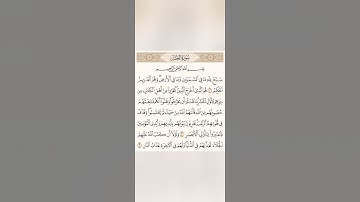 سورة الحشر
بسم الله الرحمن الرحيم
سبح لله ما في السموات وما في الأرض وهو العزيز
الحكيم ١ هو الذي أخرج الذين كفروا من أهل الكتاب من
ديرهم لأول الحشر ما ظننتم أن يخرجوا وظنوا أنهم مانعتهم
حصونهم من الله فأتىهم الله من حيث لم يحتسبوا وقذف
في قلوبهم الرعب يخربون بيوتهم بأيديهم وأيدي المؤمنين
فاعتبروا يأولي الأبصر ٢ ولولا أن كتب الله عليهم
الجلاء لعذبهم في الدنيا ولهم في الآخرة عذاب النار ٣